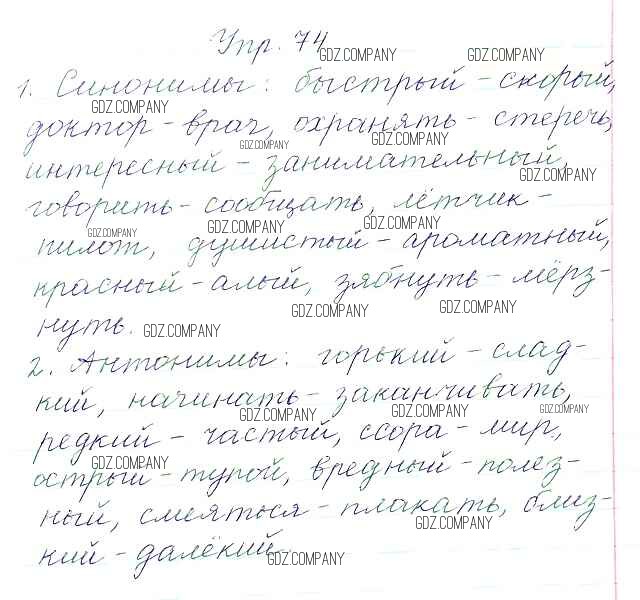 Упр. 74
GDZ.COMPANY GDZ.COMPANY
1. Синонимы: быстрый - скорый,
GDZ.COMPANY
доктор - врач, охранять - стеречь,
GDZ.COMPANY GDZ.COMPANY
интересный - занимательный,
GDZ.COMPANY
говорить - сообщать, лётчик -
GDZ.COMPANY GDZ.COMPANY GDZ.COMPANY
пилот, душистый - ароматный,
красный - алый, зябнуть - мёрз-
GDZ.COMPANY GDZ.COMPANY
нуть. GDZ.COMPANY
2. Антонимы: горький - слад-
кий, начинать - заканчивать,
GDZ.COMPANY GDZ.COMPANY GDZ.COMPANY
редкий - частый, ссора - мир,
GDZ.COMPANY
острый - тупой, вредный - полез-
ный, смеяться - плакать, близ-
GDZ.COMPANY
кий - далёкий.
GDZ.COMPANY